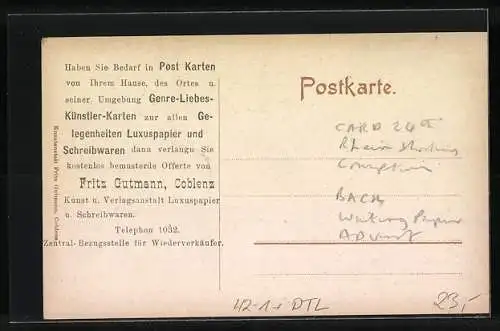 Haben Sie Bedarf in Post Karten
von Ihrem Hause, des Ortes u.
seiner Umgebung Genre-Liebes-
Künstler-Karten zur allen Ge-
legenheiten Luxuspapier und
Schreibwaren dann verlangen Sie
kostenlos bemusterte Offerte von
Fritz Gutmann, Coblenz
Kunst u. Verlagsanstalt Luxuspapier
u. Schreibwaren.
Telephon 1032.
Zentral-Bezugsstelle für Wiederverkäufer.
Kunstanstalt Fritz Gutmann, Coblenz
Postkarte.
CARD 24
BACK
Writing Papier
ADVERT
42-1 DTL
23,-